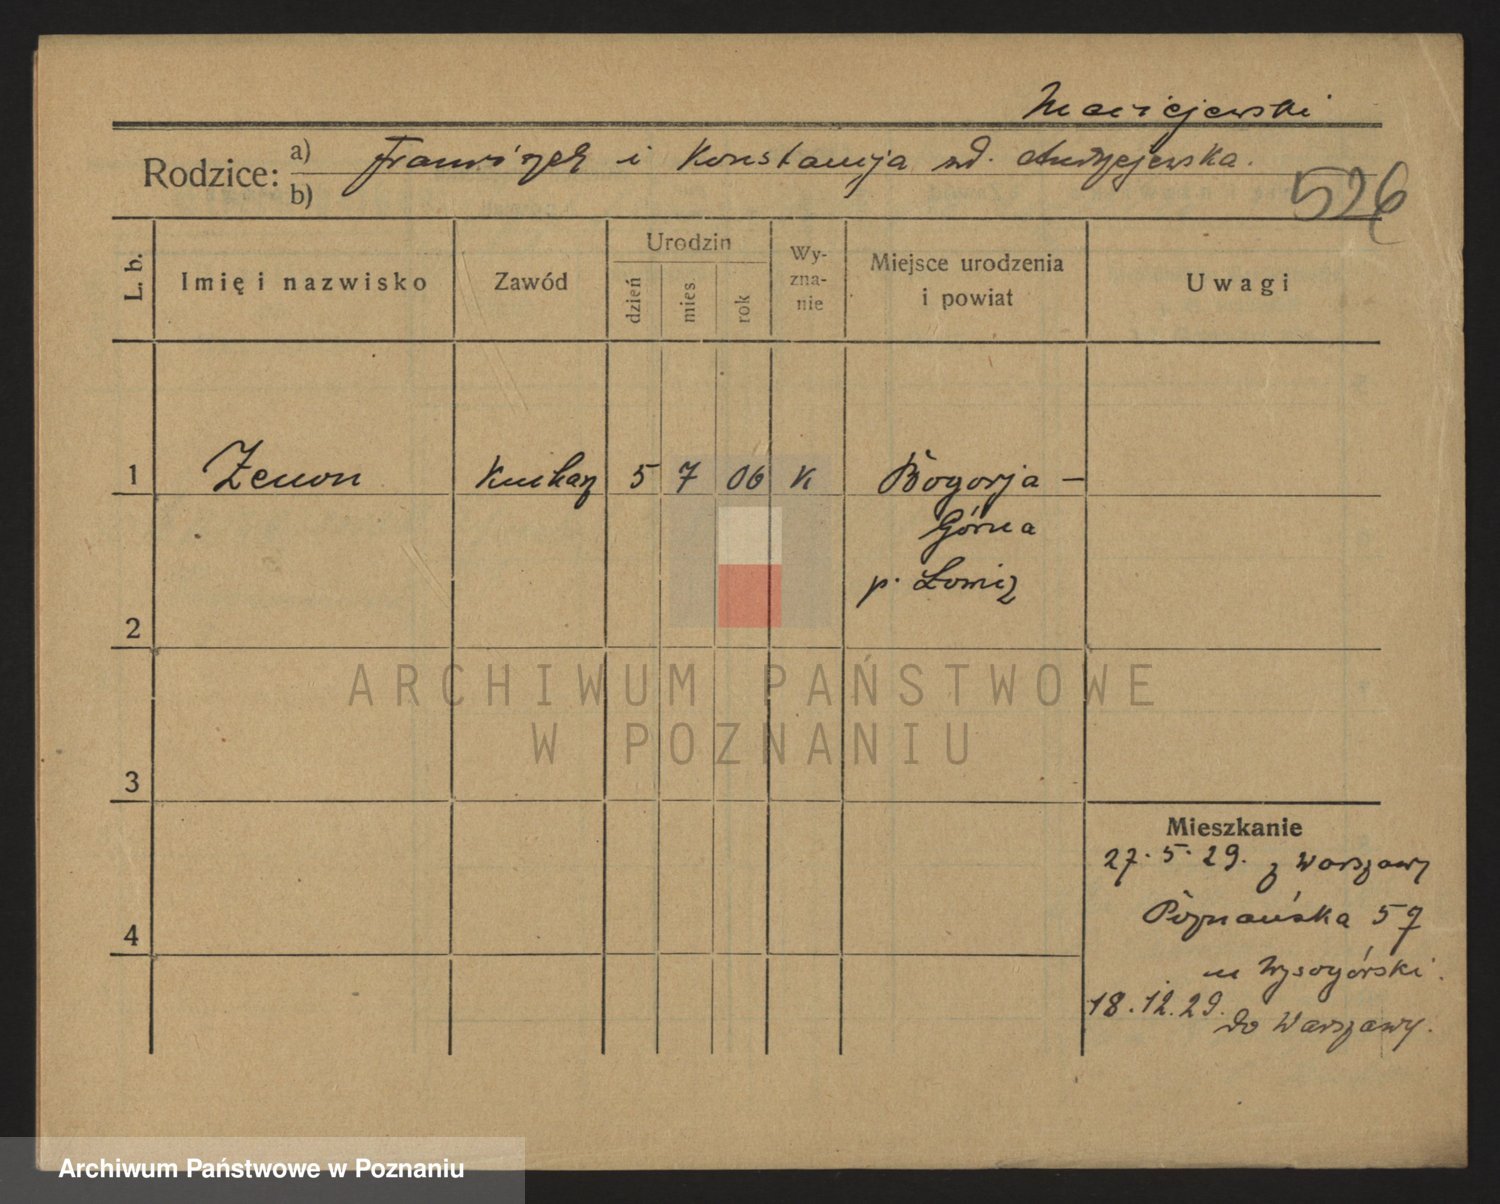 Maciejewski
Rodzice: a) Franciszek i Konstancja zd. Andrzejewska.
b)
526
L. b.
Imię i nazwisko
Zawód
Urodzin
dzień
mies
rok
Wy-
zna-
nie
Miejsce urodzenia
i powiat
Uwagi
1 Zenon Kucharz 5 7 06 K Bogorja -
Górna
p. Łowicz
2
3
4
Mieszkanie
27.5.29. z Warszawy
Poznańska 57
u Wysogórski.
18.12.29.
do Warszawy.
ARCHIWUM PAŃSTWOWE
W POZNANIU
Archiwum Państwowe w Poznaniu